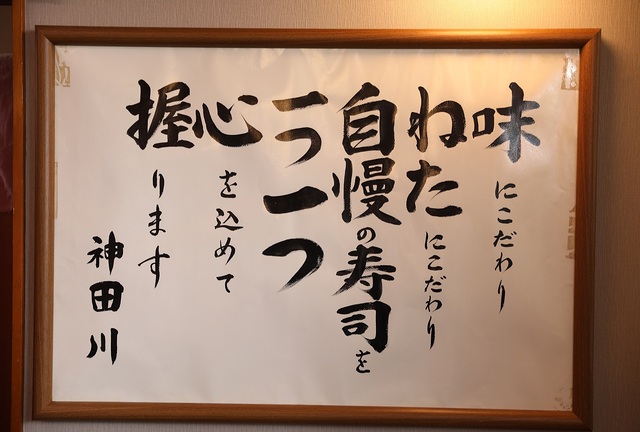 味にこだわり
ねたにこだわり
自慢の寿司を
一つ一つ
心を込めて
握ります
神田川